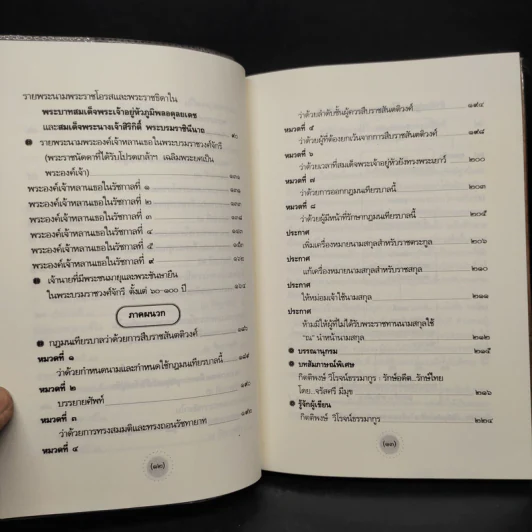 รายพระนามพระราชโอรสและพระราชธิดาใน
พระบาทสมเด็จพระเจ้าอยู่หัวภูมิพลอดุลยเดช
และสมเด็จพระนางเจ้าสิริกิติ์ พระบรมราชินีนาถ ๙๐
รายพระนามพระองค์เจ้าหลานเธอในพระบรมราชวงศ์จักรี
(พระราชนัดดาที่ได้รับโปรดเกล้าฯ เฉลิมพระยศเป็น
พระองค์เจ้า)
พระองค์เจ้าหลานเธอในรัชกาลที่ ๑
พระองค์เจ้าหลานเธอในรัชกาลที่ ๒
พระองค์เจ้าหลานเธอในรัชกาลที่ ๓
พระองค์เจ้าหลานเธอในรัชกาลที่ ๔
พระองค์เจ้าหลานเธอในรัชกาลที่ ๕
พระองค์เจ้าหลานเธอในรัชกาลที่ ๙ ๑๖๒
เจ้านายที่มีพระชนมายุและพระชันษายืน
ในพระบรมราชวงศ์จักรี ตั้งแต่ ๖๐-๑๐๐ ปี ๑๖๔
ภาคผนวก
กฎมณเฑียรบาลว่าด้วยการสืบราชสันตติวงศ์ ๑๘๖
หมวดที่ ๑
ว่าด้วยกำหนดนามและกำหนดใช้กฎมณเฑียรบาลนี้
หมวดที่ ๒
บรรยายศัพท์
หมวดที่ ๓
ว่าด้วยการทรงสมมติและทรงถอนรัชทายาท ๑๙๒
หมวดที่ ๔
(๑๒)
ว่าด้วยลำดับชั้นผู้ควรสืบราชสันตติวงศ์ ๑๙๔
หมวดที่ ๕
ว่าด้วยผู้ที่ต้องยกเว้นจากการสืบราชสันตติวงศ์ ๑๙๘
หมวดที่ ๖
ว่าด้วยเวลาที่สมเด็จพระเจ้าอยู่หัวยังทรงพระเยาว์ ๒๐๐
หมวดที่ ๗
ว่าด้วยการออกกฎมณเฑียรบาลนี้ ๒๐๓
หมวดที่ ๘
ว่าด้วยผู้มีหน้าที่รักษากฎมณเฑียรบาลนี้ ๒๐๕
ประกาศ
เพิ่มเครื่องหมายนามสกุลสำหรับราชตระกูล ๒๐๖
ประกาศ
แก้เครื่องหมายนามสกุลสำหรับราชสกุล ๒๑๐
ประกาศ
ให้หม่อมเจ้าใช้นามสกุล ๒๑๑
ประกาศ
ห้ามมิให้ผู้ที่ไม่ได้รับพระราชทานนามสกุลใช้
"ณ" นำหน้านามสกุล ๒๑๒
บรรณานุกรม ๒๑๕
บทสัมภาษณ์พิเศษ
กิตติพงษ์ วิโรจน์ธรรมากูร : รักษ์อดีต...รักษ์ไทย
โดย..จรัสศรี มีมุข ๒๑๖
รู้จักผู้เขียน
กิตติพงษ์ วิโรจน์ธรรมากูร ๒๒๔
(๑๓)